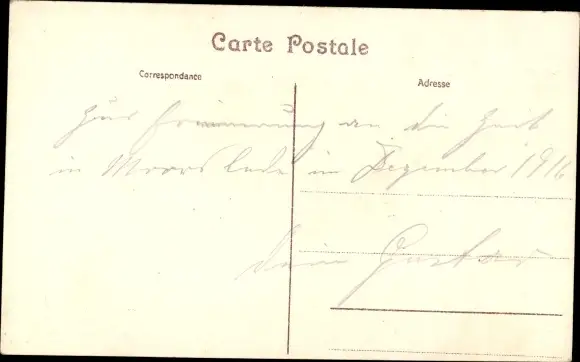 Carte Postale
Correspondance
Adresse
Zur Erinnerung an die Zeit
in Moorslede im Dezember 1916
Dein Gustav